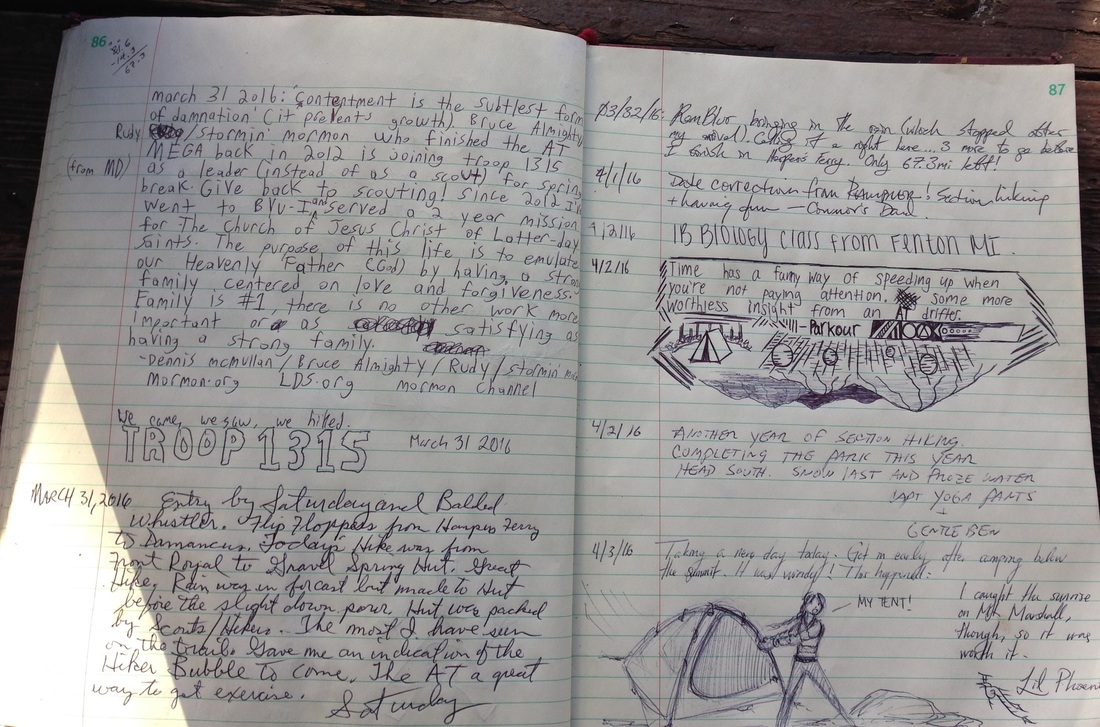 86
81.6
-14.3
67.3
march 31 2016: "contentment is the subtlest form
of damnation" (it prevents growth) Bruce Almighty
Rudy /stormin' mormon who finished the AT
MEGA back in 2012 is joining troop 1315
(from MD) as a leader (instead of as a scout) for spring
break. Give back to scouting! Since 2012 I've
went to BYU-I and served a 2 year mission
for The Church of Jesus Christ of Latter-day
Saints. The purpose of this life is to emulate
our Heavenly Father (God) by having a strong
family centered on love and forgiveness.
Family is #1, there is no other work more
important or as satisfying as
having a strong family.
-Dennis mcmullan/Bruce Almighty/Rudy/stormin'
Mormon.org LDS.org mormon channel
We came, we saw, we hiked.
TROOP 1315 March 31 2016
MARCH 31, 2016 Entry by Saturday and Balded
Whistler. Flip Floppers from Harpers Ferry
to Damascus. Today's Hike was from
Front Royal to Gravel Spring Hut. Great
Hike. Rain way in forcast but made to Hut
before the slight down pour. Hut was packed
by Scouts/Hikers.. The most I have seen
on the trail. Gave me an indication of the
Hiker Bubble to come. The AT a great
way to get exercise.
Saturday
87
03/32/16: RamBler bringing in the rain (which stopped after
my arrival). Calling it a night here... 3 more to go before
I finish in Harpers Ferry. Only 67.3mi left!
4/1/16 Date correction from RAMBLER! Section hiking
+ having fun - Connor's Dad
4/2/16 IB BIOLOGY CLASS FROM FENTON MI.
4/2/16 Time has a funny way of speeding up when
you're not paying attention. some more
worthless insight from an AT drifter.
-Parkour
4/2/16 ANOTHER YEAR OF SECTION HIKING.
COMPLETING THE PARK THIS YEAR
HEAD SOUTH. SNOW LAST AND FROZE WATER
CAPT YOGA PANTS
GENTLE BEN
4/3/16 Taking a nero day today. Got in early after camping below
the summit. It was windy! This happened:
MY TENT!
I caught the sunrise
on Mt. Marshall,
though, so it was
worth it.
Lil Phoeni